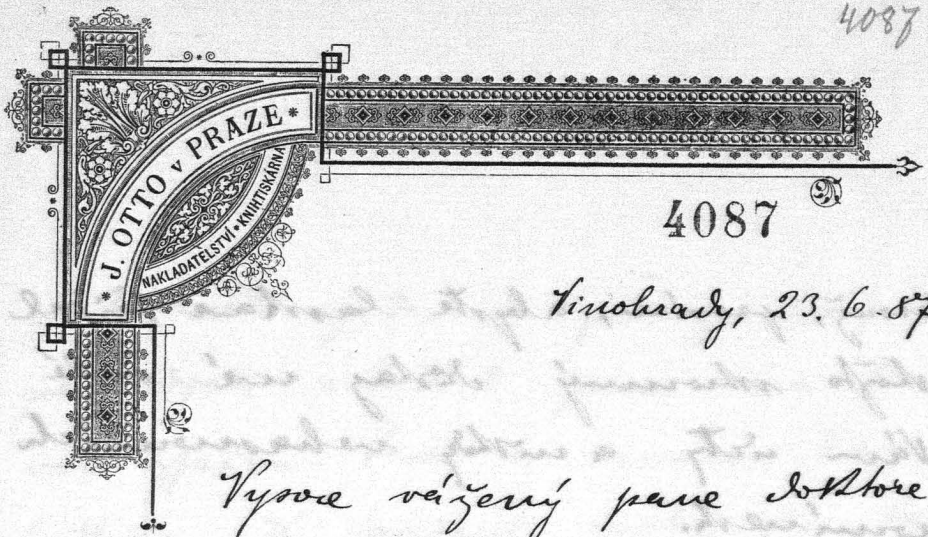 4087
* J. OTTO v PRAZE *
NAKLADATELSTVÍ • KNIHTISKÁRNA
4087
Vinohrady, 23. 6. 87
Vysoce vážený pane doktore